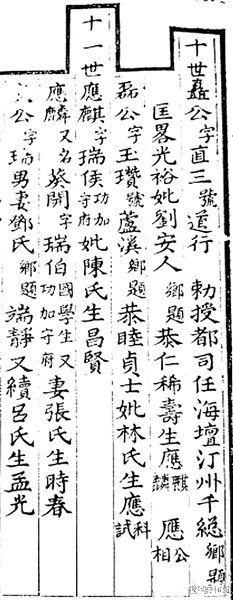 十世矗公字直三號進行 勅授都司任海壇汀州千縂鄉題
匡畧光裕妣劉安人鄉題恭仁稀壽生應麟 應祺 應相公
磊公字玉瓚號蘆溪鄉題恭睦貞士妣林氏生應科 應試
十一世應麒字瑞侯功加守府妣陳氏生昌賢
應麟又名葵開字瑞伯國學生又功加守府妻張氏生時春
公字瑞男妻鄧氏鄉題端靜又續呂氏生孟光